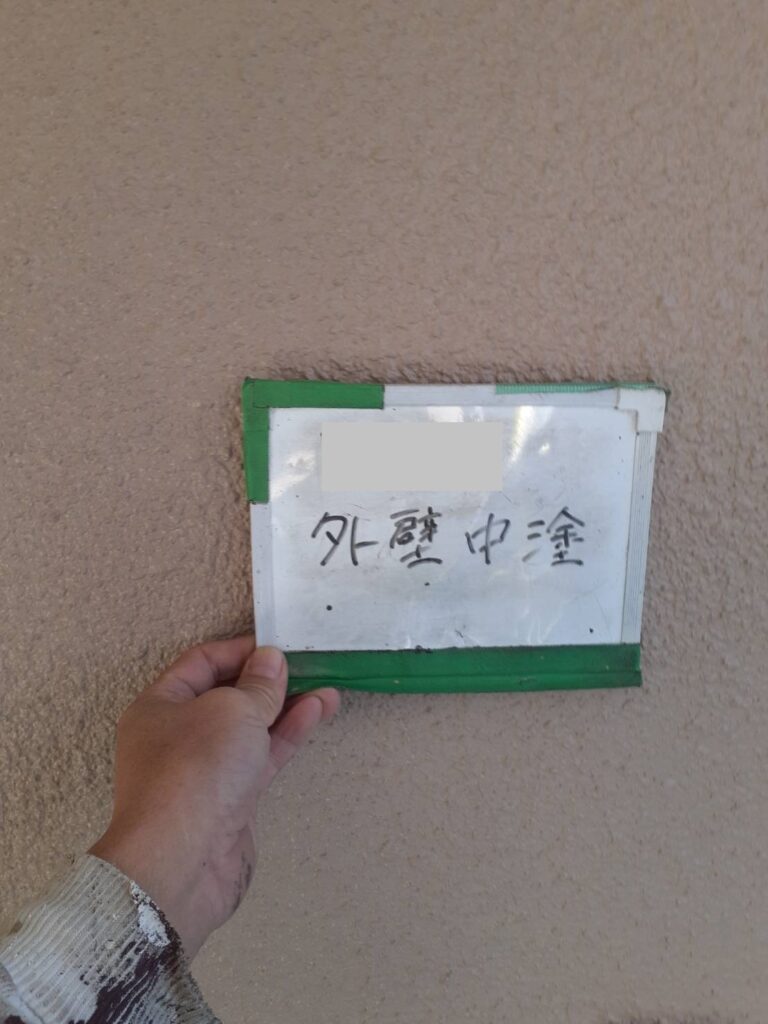 外壁中塗